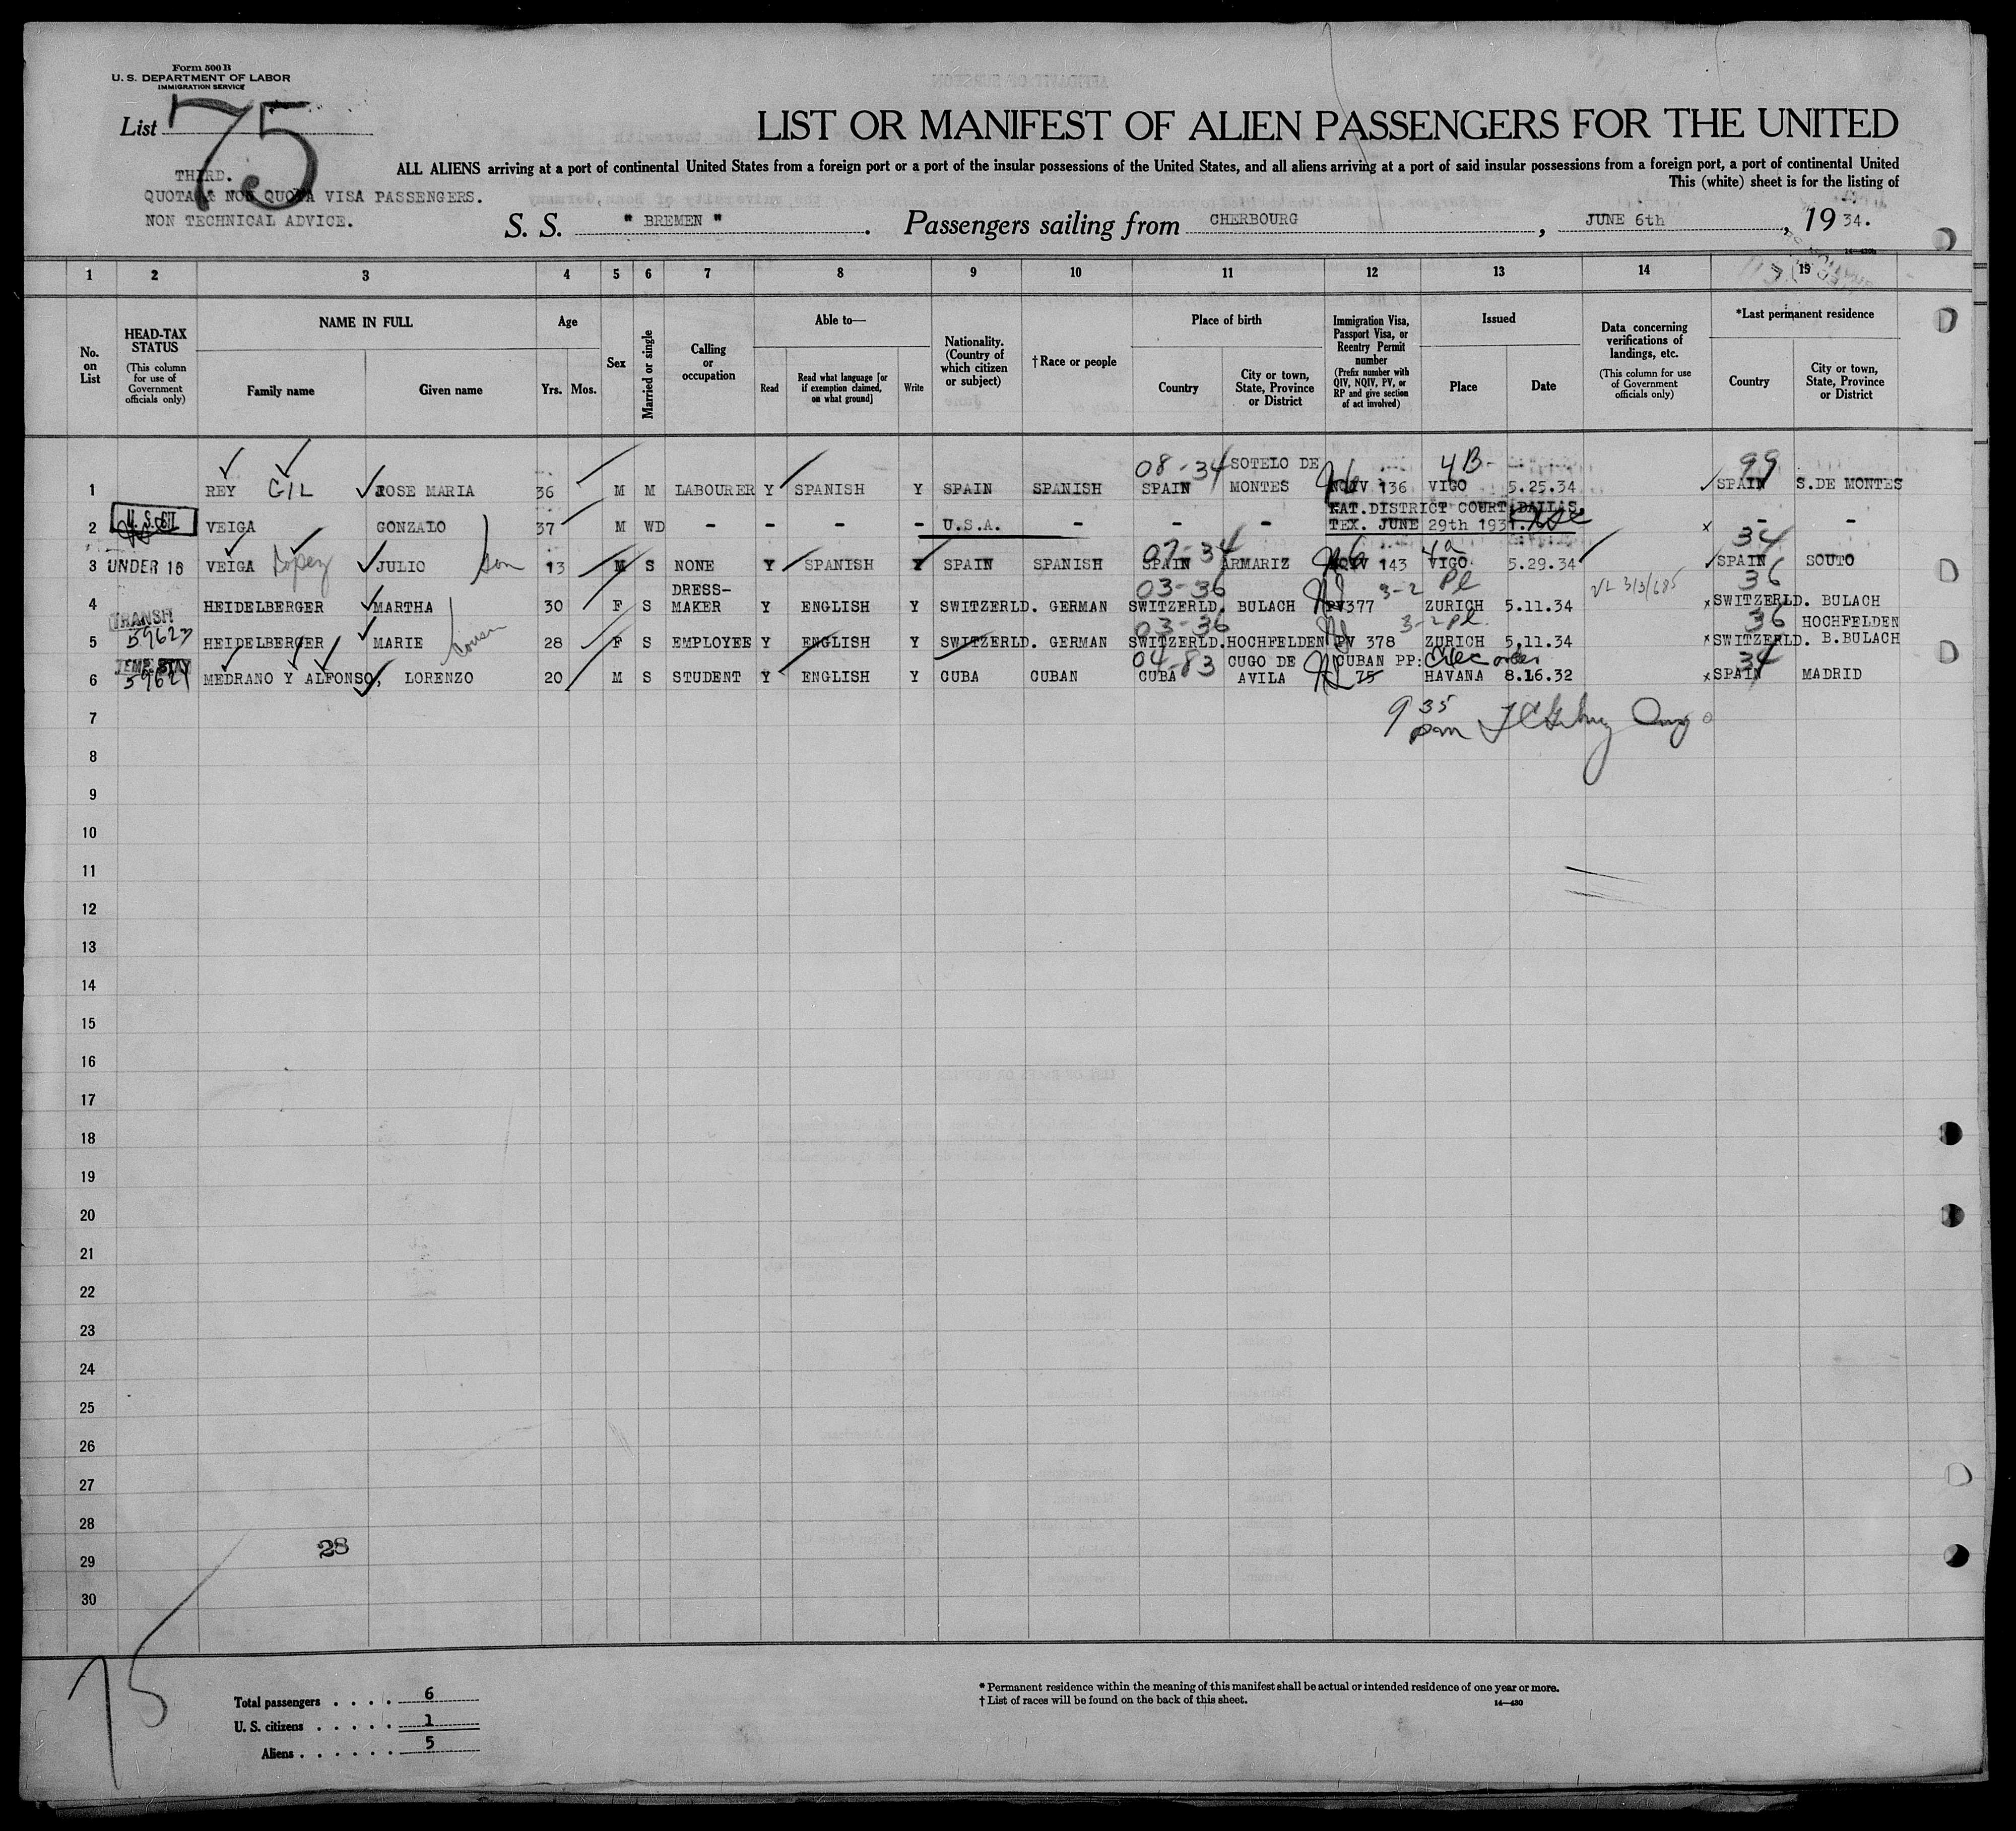 Form 500 B
U. S. DEPARTMENT OF LABOR
IMMIGRATION SERVICE
List 75
LIST OR MANIFEST OF ALIEN PASSENGERS FOR THE UNITED
ALL ALIENS arriving at a port of continental United States from a foreign port or a port of the insular possessions of the United States, and all aliens arriving at a port of said insular possessions from a foreign port, a port of continental United
This (white) sheet is for the listing of
THIRD.
QUOTA & NON QUOTA VISA PASSENGERS.
NON TECHNICAL ADVICE.
S. S. " BREMEN ". Passengers sailing from CHERBOURG, JUNE 6th, 19 34.
1 2 3 4 5 6 7 8 9 10 11 12 13 14 15
No. on List
HEAD-TAX STATUS (This column for use of Government officials only)
NAME IN FULL
Family name Given name
Age
Yrs. Mos.
Sex
Married or single
Calling or occupation
Able to—
Read Read what language [or if exemption claimed, on what ground] Write
Nationality. (Country of which citizen or subject)
† Race or people
Place of birth
Country City or town, State, Province or District
Immigration Visa, Passport Visa, or Reentry Permit number (Prefix number with QIV, NQIV, PV, or RP and give section of act involved)
Issued
Place Date
Data concerning verifications of landings, etc. (This column for use of Government officials only)
*Last permanent residence
Country City or town, State, Province or District
08-34 SOTELO DE 4B- 99
1 REY GIL JOSE MARIA 36 M M LABOURER Y SPANISH Y SPAIN SPANISH SPAIN MONTES NQIV 136 VIGO 5.25.34 SPAIN S.DE MONTES
U. S. CIT. NAT.DISTRICT COURT DALLAS,
2 VEIGA GONZALO 37 M WD - - - - U.S.A. - - - TEX. JUNE 29th 1931. x - -
07-34 4a 34
3 UNDER 16 VEIGA Lopez JULIO son 13 M S NONE Y SPANISH Y SPAIN SPANISH SPAIN ARMARIZ NQIV 143 VIGO 5.29.34 SPAIN SOUTO
DRESS- 03-36 3-2 Pl VL 313/685 36
4 HEIDELBERGER MARTHA 30 F S MAKER Y ENGLISH Y SWITZERLD. GERMAN SWITZERLD. BULACH PV377 ZURICH 5.11.34 x SWITZERLD. BULACH
TRANSIT 03-36 3-2 Pl. 36 HOCHFELDEN
5 59627 HEIDELBERGER MARIE cousin 28 F S EMPLOYEE Y ENGLISH Y SWITZERLD. GERMAN SWITZERLD. HOCHFELDEN PV 378 ZURICH 5,11.34 x SWITZERLD. B.BULACH
TEMP. STAY 04-83 CUGO DE CUBAN PP: 34
6 59621 MEDRANO Y ALFONSO, LORENZO 20 M S STUDENT Y ENGLISH Y CUBA CUBAN CUBA AVILA 75 HAVANA 8.16.32 x SPAIN MADRID
7 9 35 pm
8
9
10
11
12
13
14
15
16
17
18
19
20
21
22
23
24
25
26
27
28
28
29
30
75
Total passengers . . . . 6
U. S. citizens . . . . . 1
Aliens . . . . . . 5
* Permanent residence within the meaning of this manifest shall be actual or intended residence of one year or more.
† List of races will be found on the back of this sheet.
14—430